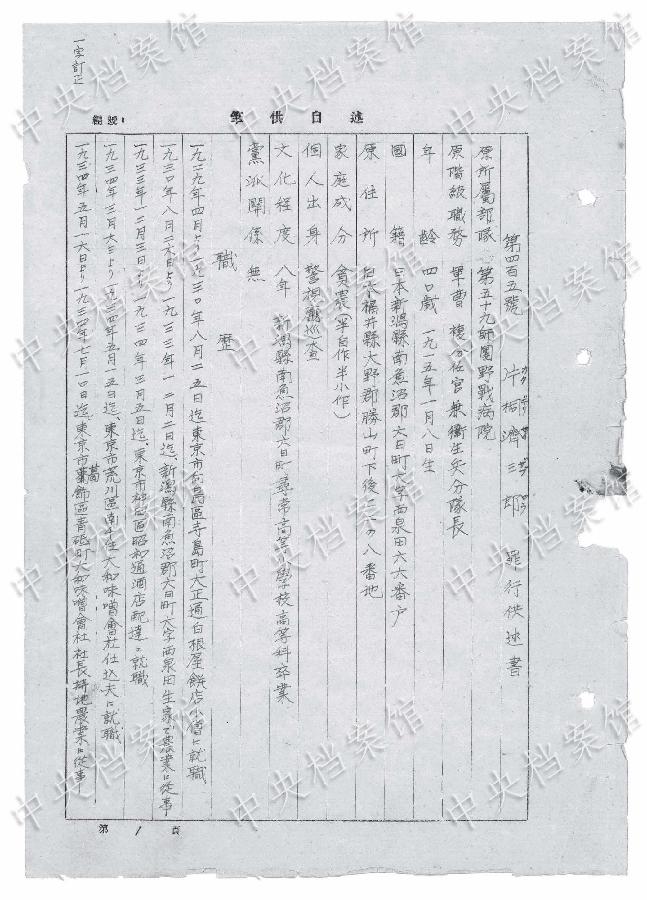 一字訂正
編號:
筆供白述
第四百五號 片桐濟三郎 罪行供述書
カタ ギリ サイ ザブ ロウ
原所屬部隊 第五十九師團野戰病院
原階級職務 軍曹 複分任官兼衛生兵分隊長
年齡 四〇歲 一九一五年一月八日生
國籍 日本新潟縣南魚沼郡六日町大字西泉田六六番戶
原住所 日本福井縣大野郡勝山町下後二〇八番地
家庭成分 貧農(半自作半小作)
個人出身 警視廳巡查
文化程度 八年 新潟縣南魚沼郡六日町尋常高等小學校高等科卒業
黨派關係 無
職歷
一九二九年四月より一九三〇年八月二五日迄東京市向島區寺島町大正通白根屋餅店小僧に就職
一九三〇年八月二六日より一九三三年一二月二日迄、新潟縣南魚沼郡六日町大字西泉田生家で農業に從事
一九三三年一二月三日より一九三四年三月五日迄、東京市神田區昭和通酒店配達に就職
一九三四年三月六日より一九三四年五月一五日迄、東京市荒川區南千住大和味噌會社仕込夫に就職
一九三四年五月一六日より一九三四年七月一〇日迄、東京市葛飾區青砥町大和味噌會社社長耕地農業に從事
葛
第 1 頁
中央档案馆